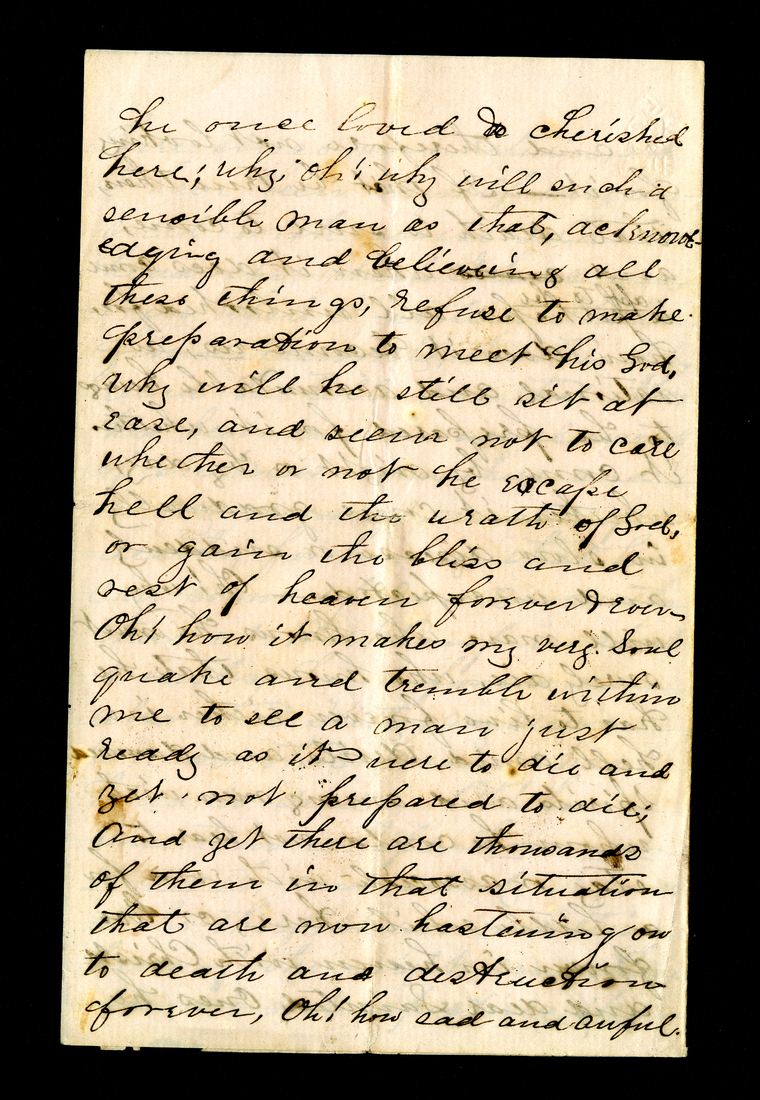 he once loved & cherished
here; why, oh! why will such a
sensible man as that, acknowl-
edging and believeing all
these things, refuse to make
preparation to meet his God,
why will he still sit at
ease, and seem not to care
whether or not he escape
hell and the wrath of God,
or gain the bliss and
rest of heaven forever & ever.
Oh! how it makes my very Soul
quake and tremble within
me to see a man just
ready as it were to die and
yet not prepared to die;
And yet there are thousands
of them in that situation
that are now hastening on
to death and destruction
forever, Oh! how sad and awful.